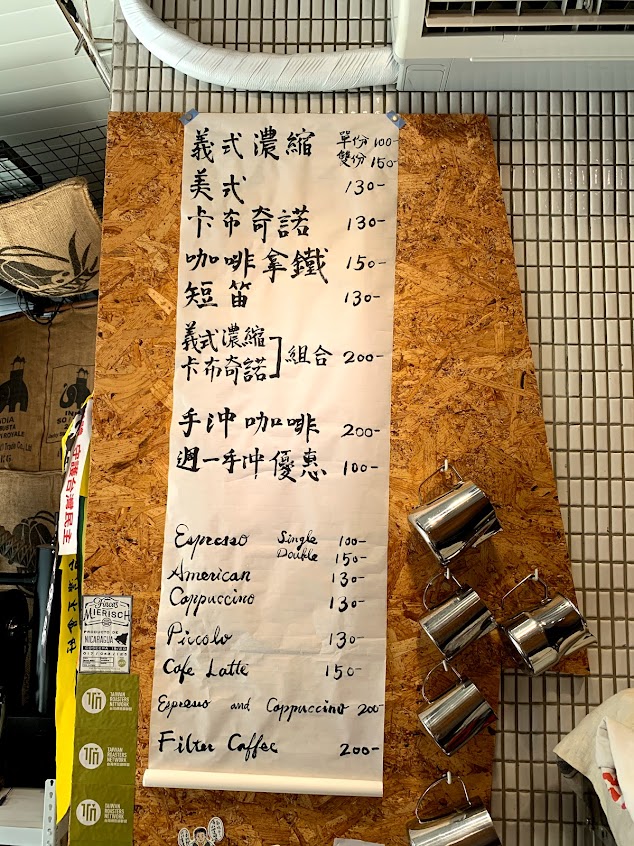 義式濃縮 單份 100-
雙份 150-
美式 130-
卡布奇諾 130-
咖啡拿鐵 150-
短笛 130-
義式濃縮
卡布奇諾 ]組合 200-
手沖咖啡 200-
週一手沖優惠 100-
Espresso Single 100-
Double 150-
American 130-
Cappuccino 130-
Piccolo 130-
Cafe Latte 150-
Espresso and Cappuccino 200-
Filter Coffee 200-
守護台灣民主
MIERISCH
PRODUCTO DE
NICARAGUA
TAIWAN
ROASTERS
NETWORK
TAIWAN
ROASTERS
NETWORK
TAIWAN
ROASTERS
NETWORK